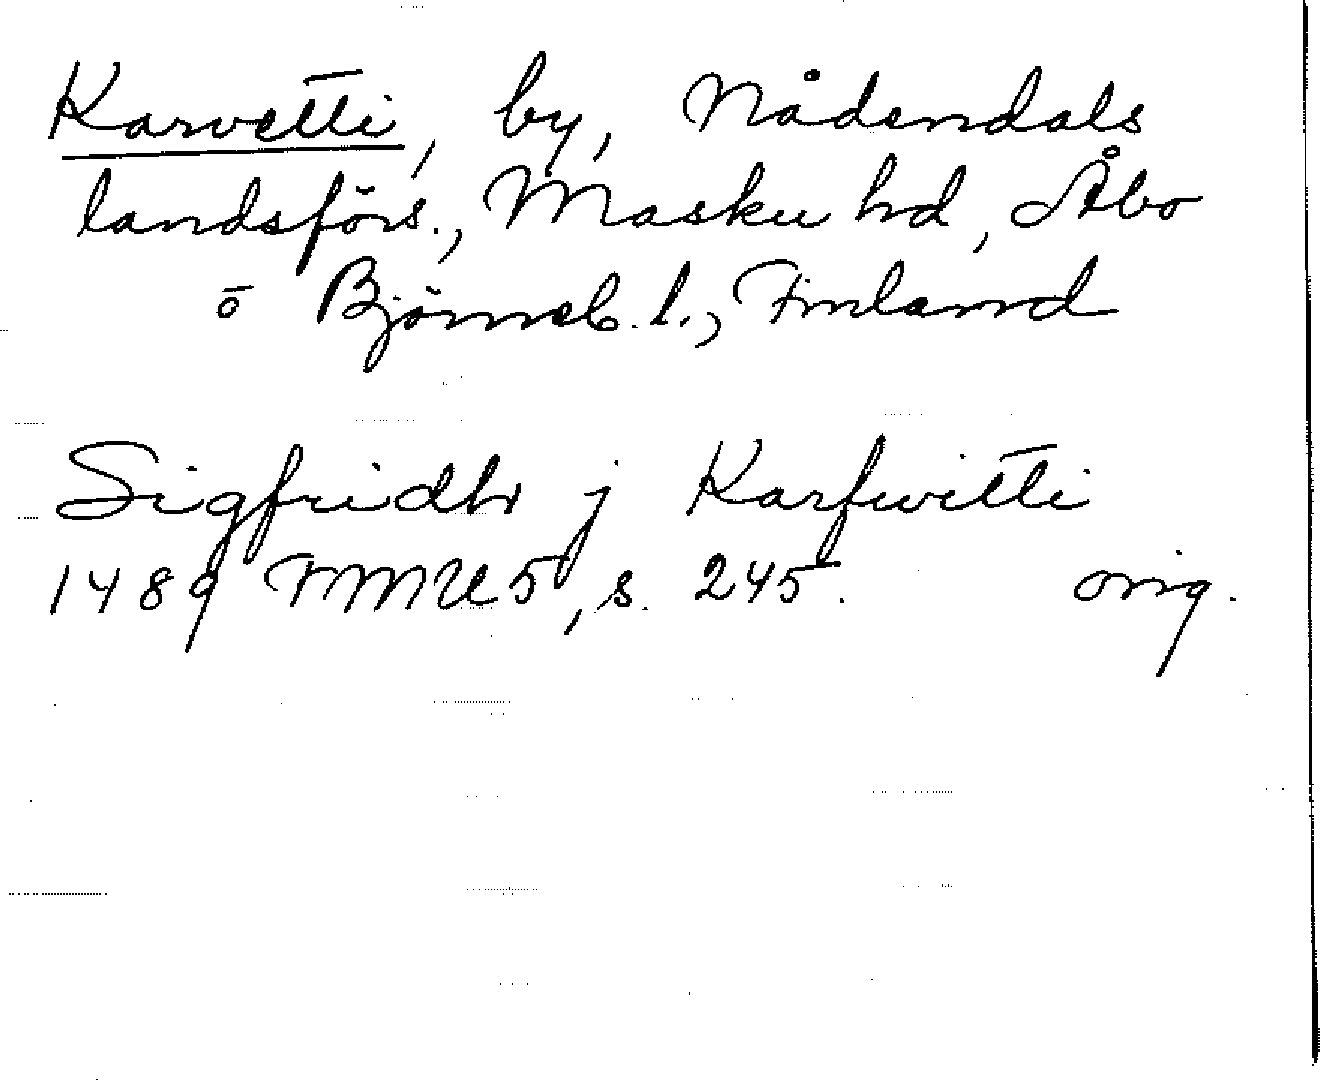 Karvetti, by, Nådendals
landsförs., Masku hd, Åbo
o Björneb. l., Finland
Sigfridhr j Karfwitti
1489 FMU 5, s. 245. orig.